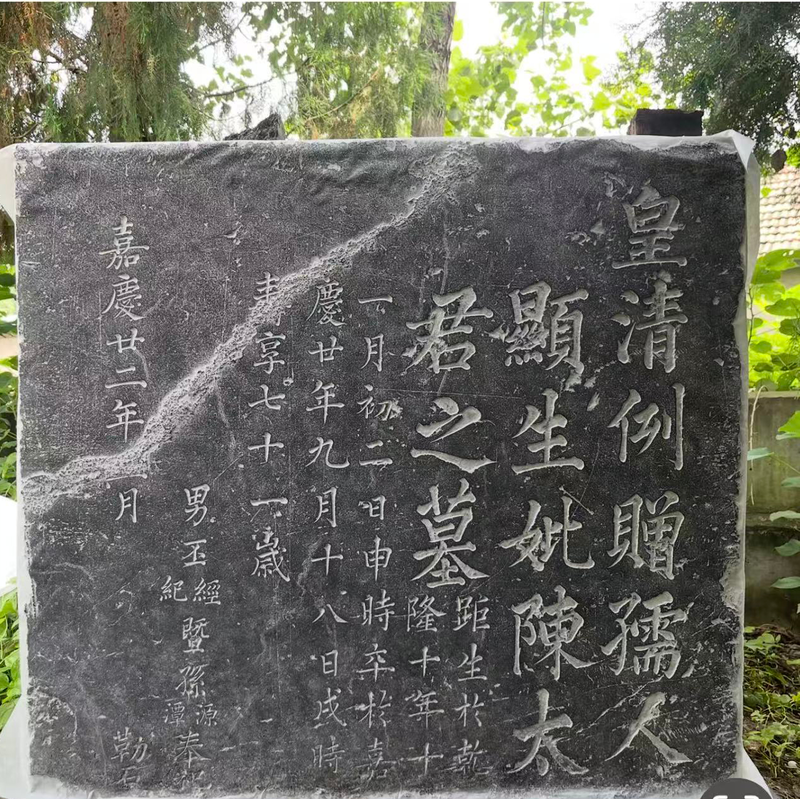 皇清例贈孺人
顯生妣陳太
君之墓
距生於乾
隆十年十
一月初二日申時卒於嘉
慶廿年九月十八日戌時
壽享七十一歲
男玉經紀暨孫源潭奉祀
嘉慶廿二年 月
勒石